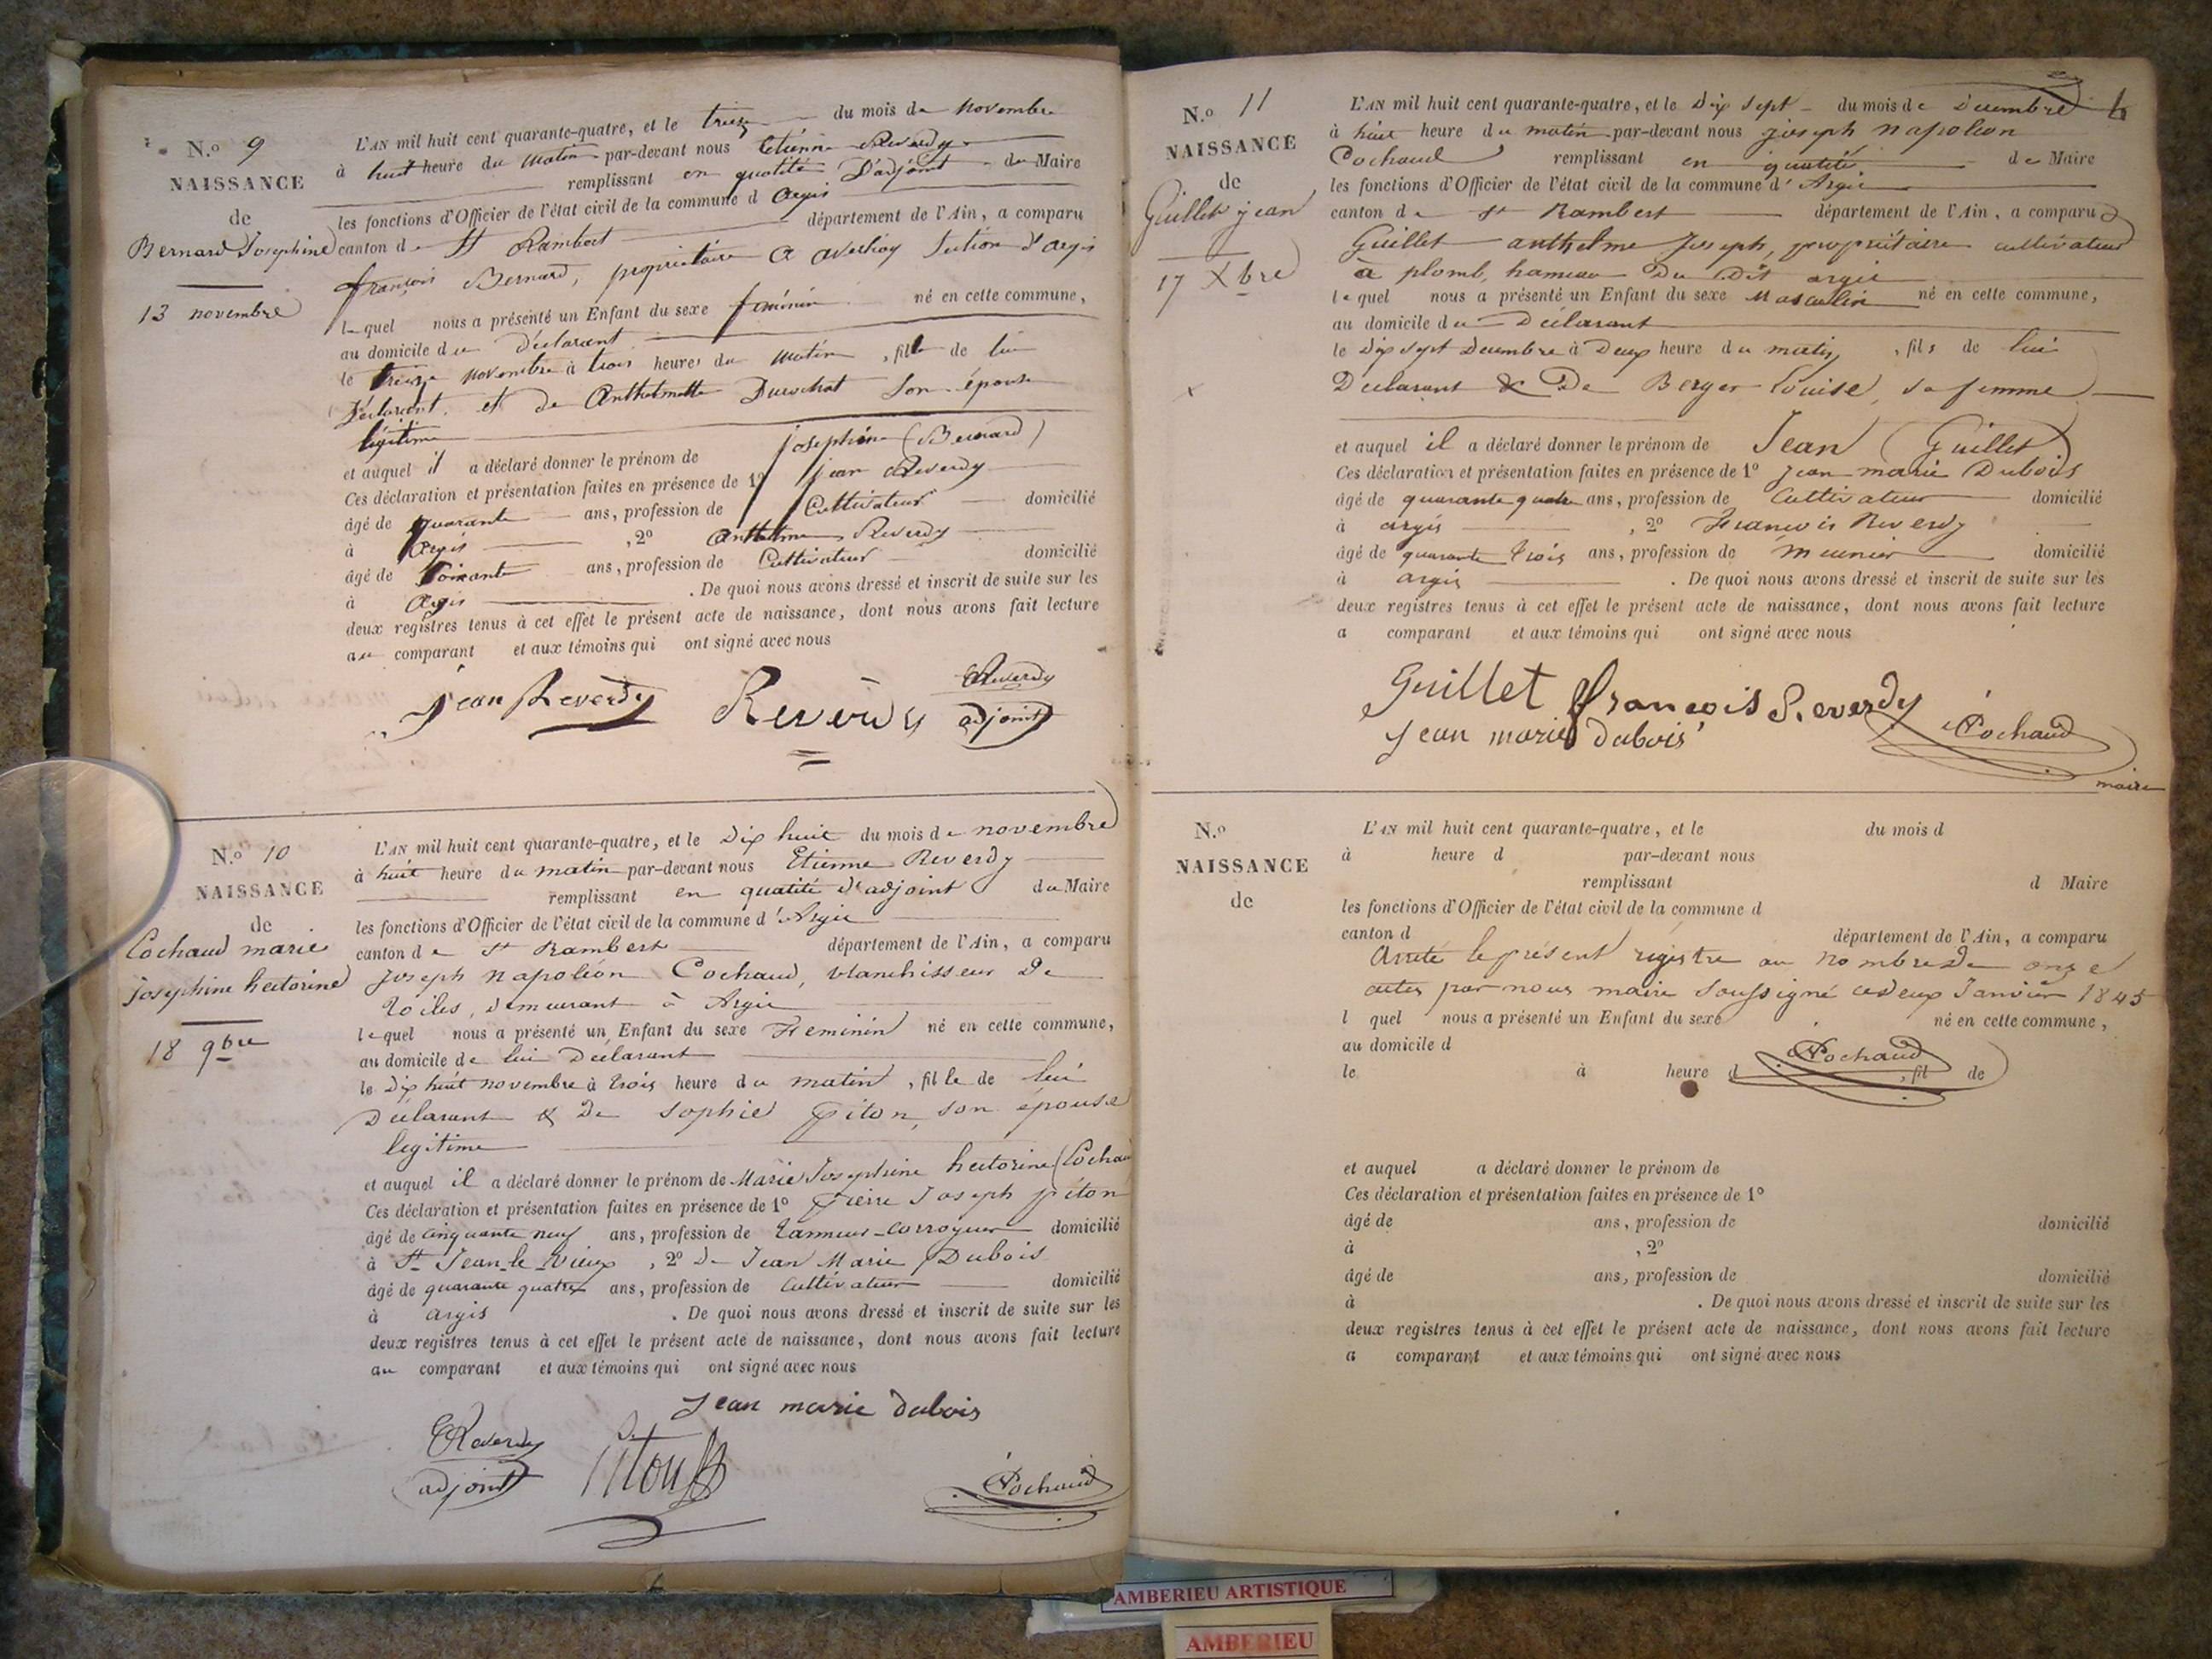 N.º 9
NAISSANCE
de
Bernard Josephine
13 novembre
L'AN mil huit cent quarante-quatre, et le treize du mois de Novembre
à huit heure du matin par-devant nous Etienne Reverdy
remplissant en qualité D'adjoint de Maire
les fonctions d'Officier de l'état civil de la commune d Argis
canton de St Rambert département de l'Ain, a comparu
françois Bernard, propriétaire a Section d'argis
lequel nous a présenté un Enfant du sexe féminin né en cette commune,
au domicile du Déclarant
le treize Novembre à trois heures du Matin, fille de lui
Déclarant et de Anthelmette Durochat Son épouse
légitime
et auquel il a déclaré donner le prénom de josephine (Bernard)
Ces déclaration et présentation faites en présence de 1º jean Reverdy
âgé de quarante ans, profession de Cultivateur domicilié
à Argis, 2º Anthelme Reverdy
âgé de Soixante ans, profession de Cultivateur domicilié
à Argis. De quoi nous avons dressé et inscrit de suite sur les
deux registres tenus à cet effet le présent acte de naissance, dont nous avons fait lecture
au comparant et aux témoins qui ont signé avec nous
jean Reverdy Reverdy EReverdy
adjoint
N.º 10
NAISSANCE
de
Cochaud marie
Josephine hectorine
18 9bre
L'AN mil huit cent quarante-quatre, et le Dix huit du mois de novembre
à huit heure du matin par-devant nous Etienne Reverdy
remplissant en qualité d'adjoint du Maire
les fonctions d'Officier de l'état civil de la commune d'Argis
canton de St Rambert département de l'Ain, a comparu
Joseph napoléon Cochaud, blanchisseur De
Toiles, demeurant à Argis
lequel nous a présenté un Enfant du sexe Feminin né en cette commune,
au domicile de lui Déclarant
le Dix huit novembre à trois heure du matin, fille de lui
Déclarant & De sophie Piton, son épouse
legitime
et auquel il a déclaré donner le prénom de Marie Josephine hectorine (Cochaud
Ces déclaration et présentation faites en présence de 1º Pierre Joseph piton
âgé de cinquante neuf ans, profession de Tanneur-corroyeur domicilié
à St Jean-le-Vieux, 2º De Jean Marie Dubois
âgé de quarante quatre ans, profession de Cultivateur domicilié
à argis. De quoi nous avons dressé et inscrit de suite sur les
deux registres tenus à cet effet le présent acte de naissance, dont nous avons fait lecture
au comparant et aux témoins qui ont signé avec nous
Jean marie dubois
EReverdy Piton
adjoint Cochaud
N.º 11
NAISSANCE
de
Guillet jean
17 Xbre
L'AN mil huit cent quarante-quatre, et le Dix sept du mois de Decembre
à huit heure du matin par-devant nous joseph napoléon
Cochaud remplissant en qualité de Maire
les fonctions d'Officier de l'état civil de la commune d'Argis
canton de St Rambert département de l'Ain, a comparu
Guillet anthelme Joseph, propriétaire cultivateur
à plomb, hameau Du Dit argis
lequel nous a présenté un Enfant du sexe Masculin né en cette commune,
au domicile du Déclarant
le Dix sept Decembre à Deux heure du matin, fils de lui
Déclarant & De Berger Louise, sa femme
et auquel il a déclaré donner le prénom de Jean (Guillet)
Ces déclaration et présentation faites en présence de 1º Jean marie Dubois
âgé de quarante quatre ans, profession de Cultivateur domicilié
à argis, 2º Francois Reverdy
âgé de quarante trois ans, profession de Meunier domicilié
à argis. De quoi nous avons dressé et inscrit de suite sur les
deux registres tenus à cet effet le présent acte de naissance, dont nous avons fait lecture
a comparant et aux témoins qui ont signé avec nous
Guillet françois Reverdy
Jean marie dubois Cochaud
maire
N.º
NAISSANCE
de
L'AN mil huit cent quarante-quatre, et le du mois d
à heure d par-devant nous
remplissant d Maire
les fonctions d'Officier de l'état civil de la commune d
canton d département de l'Ain, a comparu
Arrêté le présent régistre au nombre De onze
actes par nous maire Soussigné ce Deux Janvier 1845
l quel nous a présenté un Enfant du sexe né en cette commune,
au domicile d
Cochaud
le à heure d, fil de
et auquel a déclaré donner le prénom de
Ces déclaration et présentation faites en présence de 1º
âgé de ans, profession de domicilié
à, 2º
âgé de ans, profession de domicilié
à. De quoi nous avons dressé et inscrit de suite sur les
deux registres tenus à cet effet le présent acte de naissance, dont nous avons fait lecture
a comparant et aux témoins qui ont signé avec nous
AMBERIEU ARTISTIQUE
AMBERIEU